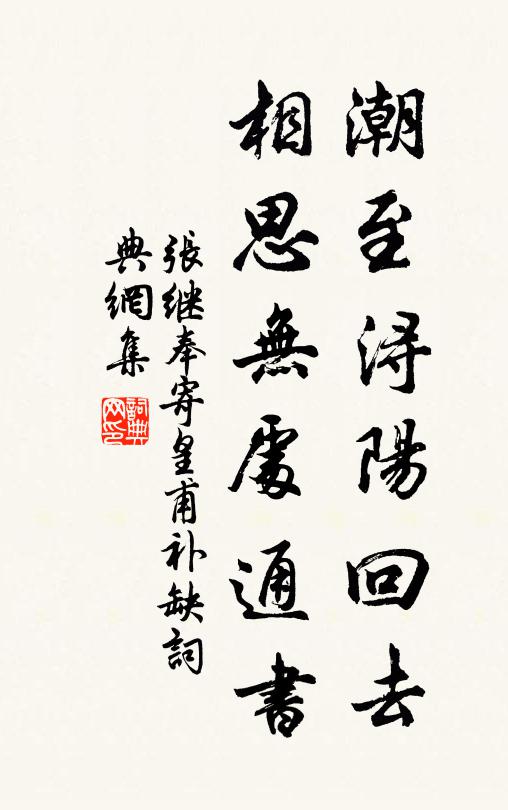 潮至浔陽回去
相思無處通書
張继奉寄皇甫补缺詞
典網集
詞典
网印